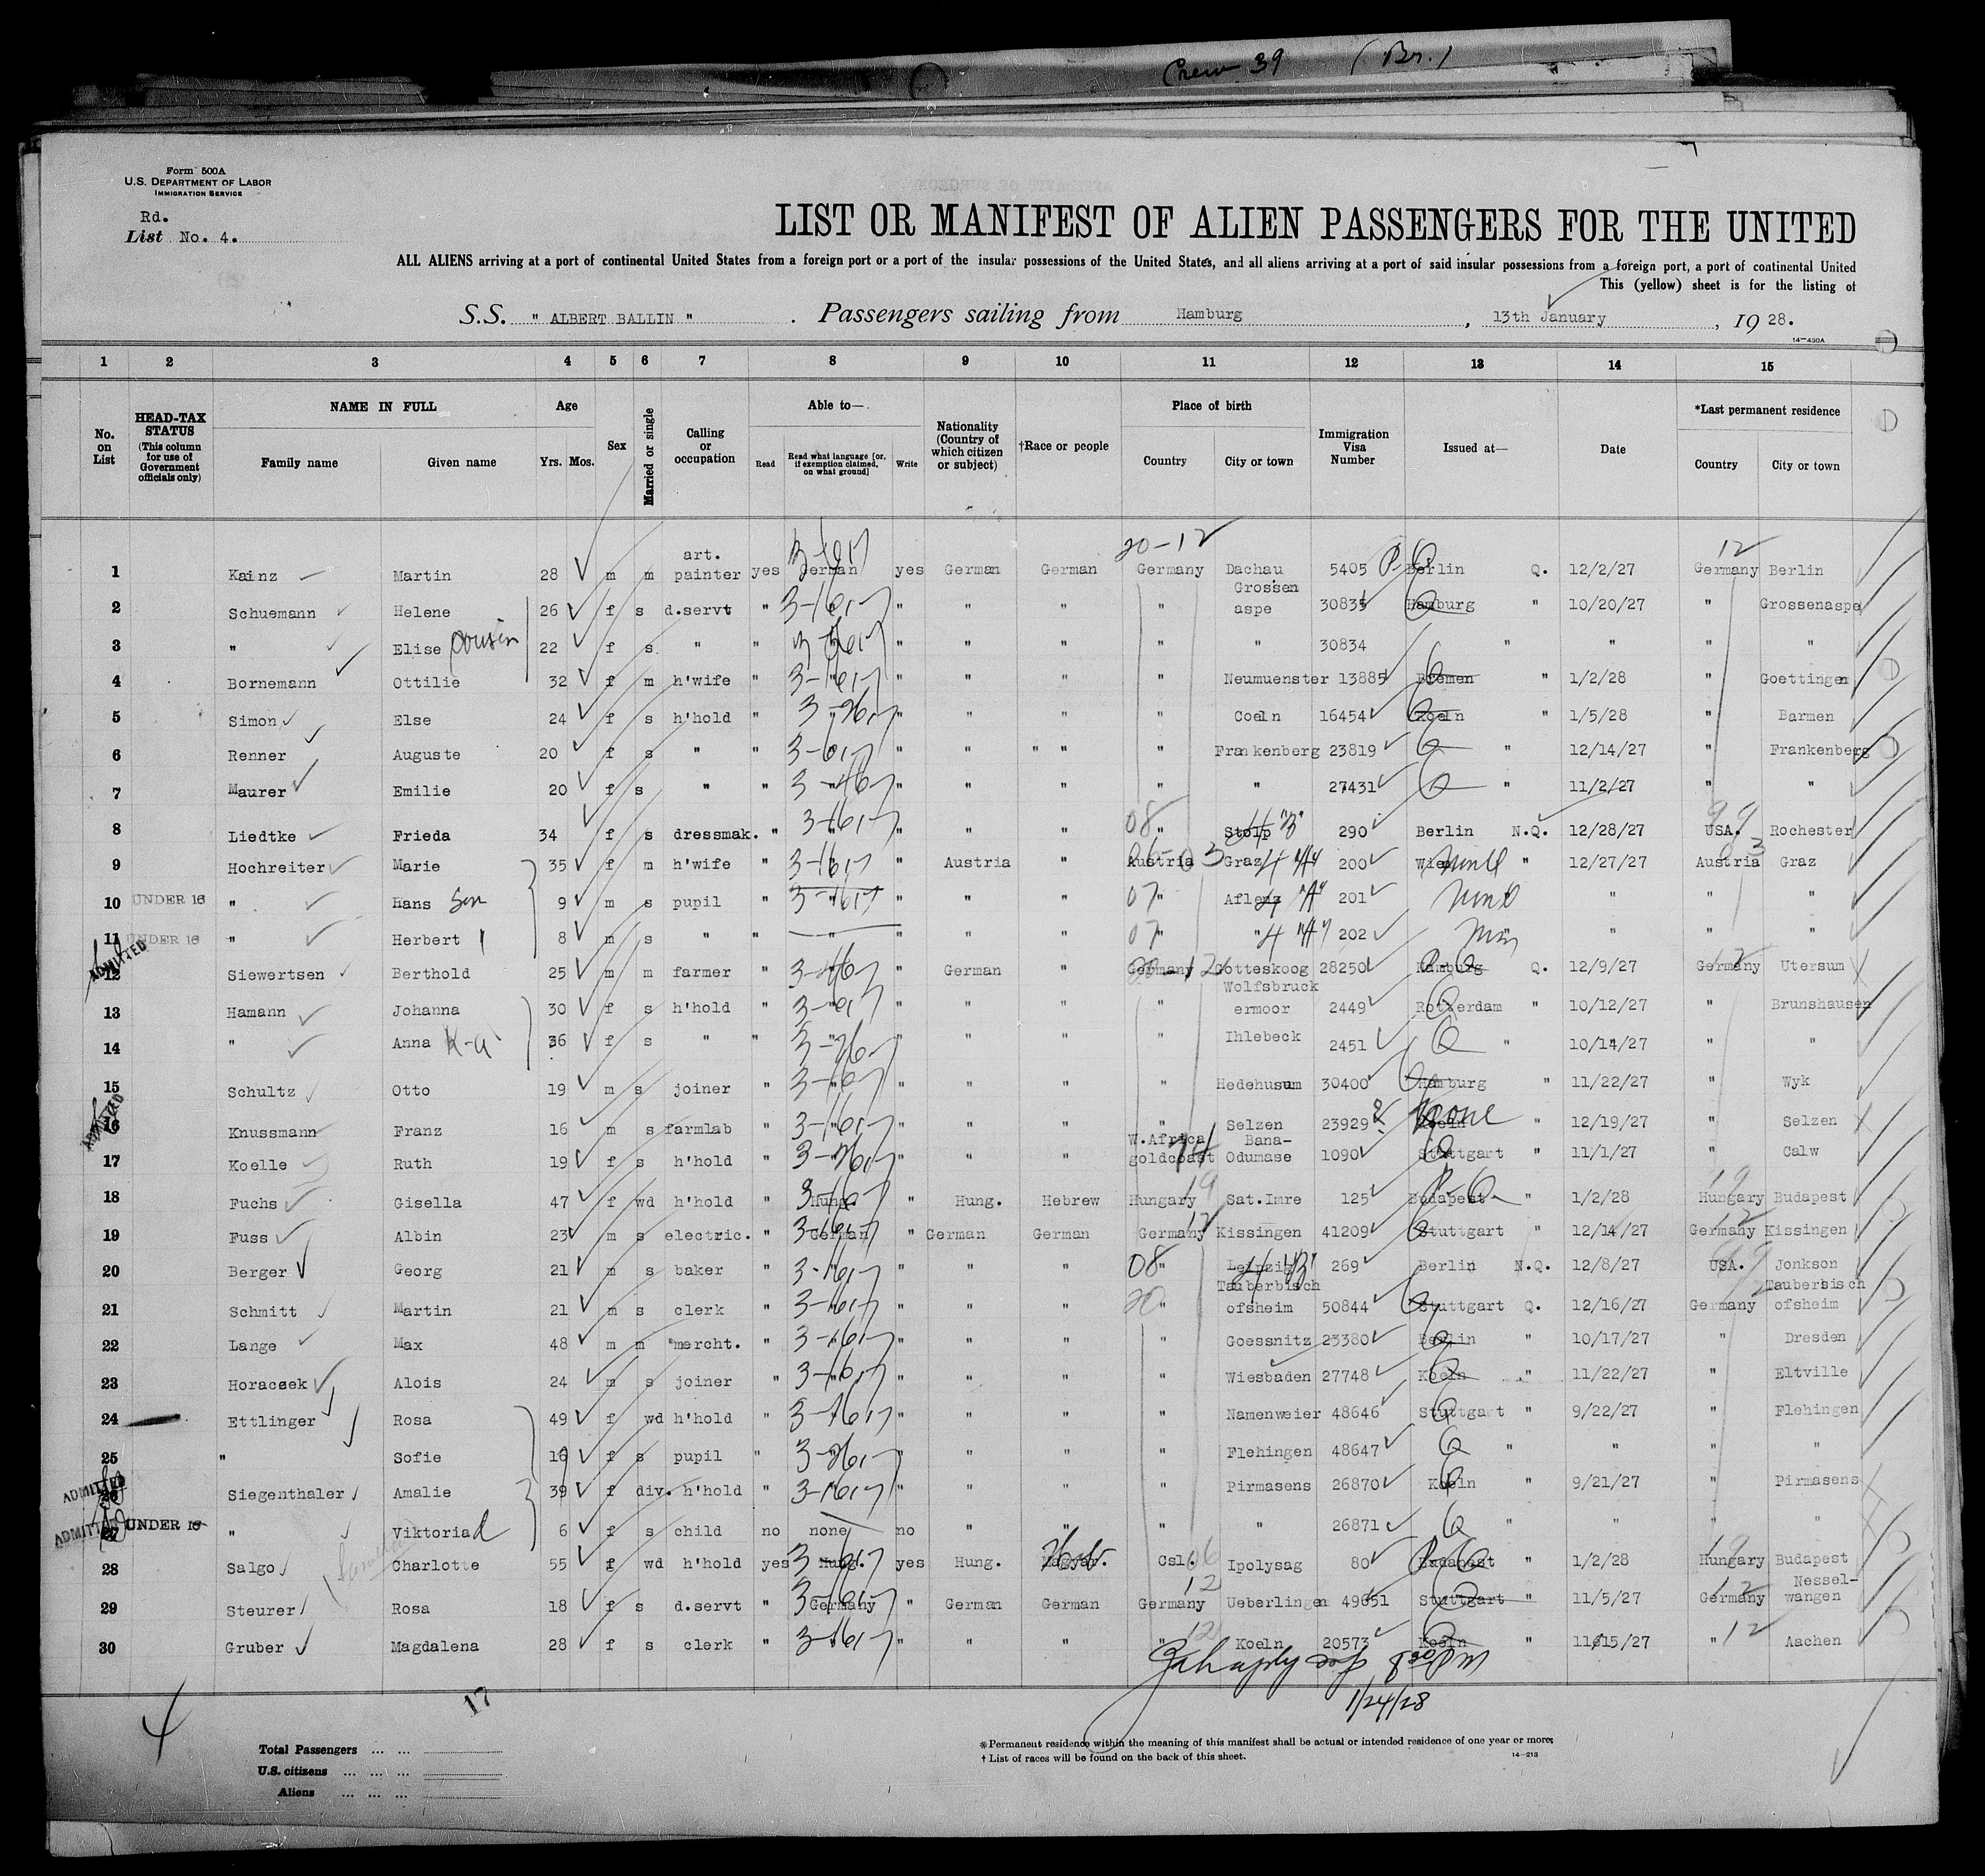 Crew 39 (Br.)
Form 500A
U.S. DEPARTMENT OF LABOR
IMMIGRATION SERVICE
Rd.
List No. 4.
LIST OR MANIFEST OF ALIEN PASSENGERS FOR THE UNITED
ALL ALIENS arriving at a port of continental United States from a foreign port or a port of the insular possessions of the United States, and all aliens arriving at a port of said insular possessions from a foreign port, a port of continental United
This (yellow) sheet is for the listing of
S.S. " ALBERT BALLIN " . Passengers sailing from Hamburg , 13th January , 19 28.
14—430A
1 2 3 4 5 6 7 8 9 10 11 12 13 14 15
No. on List
HEAD-TAX STATUS (This column for use of Government officials only)
NAME IN FULL
Family name Given name
Age
Yrs. Mos.
Sex
Married or single
Calling or occupation
Able to—
Read Read what language [or, if exemption claimed, on what ground] Write
Nationality (Country of which citizen or subject)
†Race or people
Place of birth
Country City or town
Immigration Visa Number
Issued at—
Date
*Last permanent residence
Country City or town
20-12 12
1 Kainz Martin 28 m m art. painter yes German yes German German Germany Dachau 5405 Berlin Q. 12/2/27 Germany Berlin
2 Schuemann Helene 26 f s d.servt " " " " " Grossen aspe 30835 Hamburg " 10/20/27 " Grossenaspe
3 " Elise cousin 22 f s " " " " " " " " 30834 " " " "
4 Bornemann Ottilie 32 f m h'wife " " " " " Neumuenster 13885 Bremen " 1/2/28 " Goettingen
5 Simon Else 24 f s h'hold " " " " " Coeln 16454 Koeln " 1/5/28 " Barmen
6 Renner Auguste 20 f s " " " " " " " Frankenberg 23819 " 12/14/27 " Frankenberg
7 Maurer Emilie 20 f s " " " " " " " 27431 " 11/2/27 " "
8 Liedtke Frieda 34 f s dressmak. " " " " 08 " Stolp 290 Berlin N.Q. 12/28/27 USA. Rochester
9 Hochreiter Marie 35 f m h'wife " " Austria " Austria Graz 200 Wien " 12/27/27 Austria Graz
10 UNDER 16 " Hans Son 9 m s pupil " " " " 07 " Aflenz 201 " " "
11 UNDER 16 " Herbert 8 m s " " " " " 07 " " 202 " " "
ADMITTED
12 Siewertsen Berthold 25 m m farmer " " German " Germany Gotteskoog 28250 Hamburg Q. 12/9/27 Germany Utersum
13 Hamann Johanna 30 f s h'hold " " " " " Wolfsbruck ermoor 2449 Rotterdam " 10/12/27 " Brunshausen
14 " Anna 36 f s " " " " " " Ihlebeck 2451 " 10/14/27 " "
15 Schultz Otto 19 m s joiner " " " " " Hedehusum 30400 Hamburg " 11/22/27 " Wyk
ADMITTED
16 Knussmann Franz 16 m s farmlab " " " " " Selzen 23929 Koeln " 12/19/27 " Selzen
17 Koelle Ruth 19 f s h'hold " " " " W.Africa goldcoast Bana- Odumase 1090 Stuttgart " 11/1/27 " Calw
18 Fuchs Gisella 47 f wd h'hold " Hung. " Hung. Hebrew Hungary Sat.Imre 125 Budapest " 1/2/28 Hungary Budapest
19 Fuss Albin 23 m s electric. " German " German German Germany Kissingen 41209 Stuttgart " 12/14/27 Germany Kissingen
20 Berger Georg 21 m s baker " " " " " 08 " Leipzig 269 Berlin N.Q. 12/8/27 USA. Jonkson
21 Schmitt Martin 21 m s clerk " " " " " 20 " Tauberbisch ofsheim 50844 Stuttgart Q. 12/16/27 Germany Tauberbisch ofsheim
22 Lange Max 48 m m mercht. " " " " " Goessnitz 23380 Berlin " 10/17/27 " Dresden
23 Horacsek Alois 24 m s joiner " " " " " Wiesbaden 27748 Koeln " 11/22/27 " Eltville
24 Ettlinger Rosa 49 f wd h'hold " " " " " Namenweier 48646 Stuttgart " 9/22/27 " Flehingen
25 " Sofie 16 f s pupil " " " " " Flehingen 48647 " " " "
ADMITTED
26 Siegenthaler Amalie 39 f div. h'hold " " " " Pirmasens 26870 Koeln 9/21/27 " Pirmasens
ADMITTED UNDER 16
27 " Viktoria d 6 f s child no none no " " " " 26871 " " " "
28 Salgo Charlotte 55 f wd h'hold yes Hung. yes Hung. Magyar. Heb. Csl. 06 Ipolysag 80 Budapest " 1/2/28 Hungary Budapest
29 Steurer Rosa 18 f s d.servt " Germany " German German Germany Ueberlingen 49651 Stuttgart " 11/5/27 Germany Nessel- wangen
30 Gruber Magdalena 28 f s clerk " " " " " Koeln 20573 Koeln " 11/15/27 " 12 Aachen
8 30 PM
1/24/28
4
17
Total Passengers ... ...
U.S. citizens ... ... ...
Aliens ... ... ...
*Permanent residence within the meaning of this manifest shall be actual or intended residence of one year or more.
† List of races will be found on the back of this sheet.
14—213